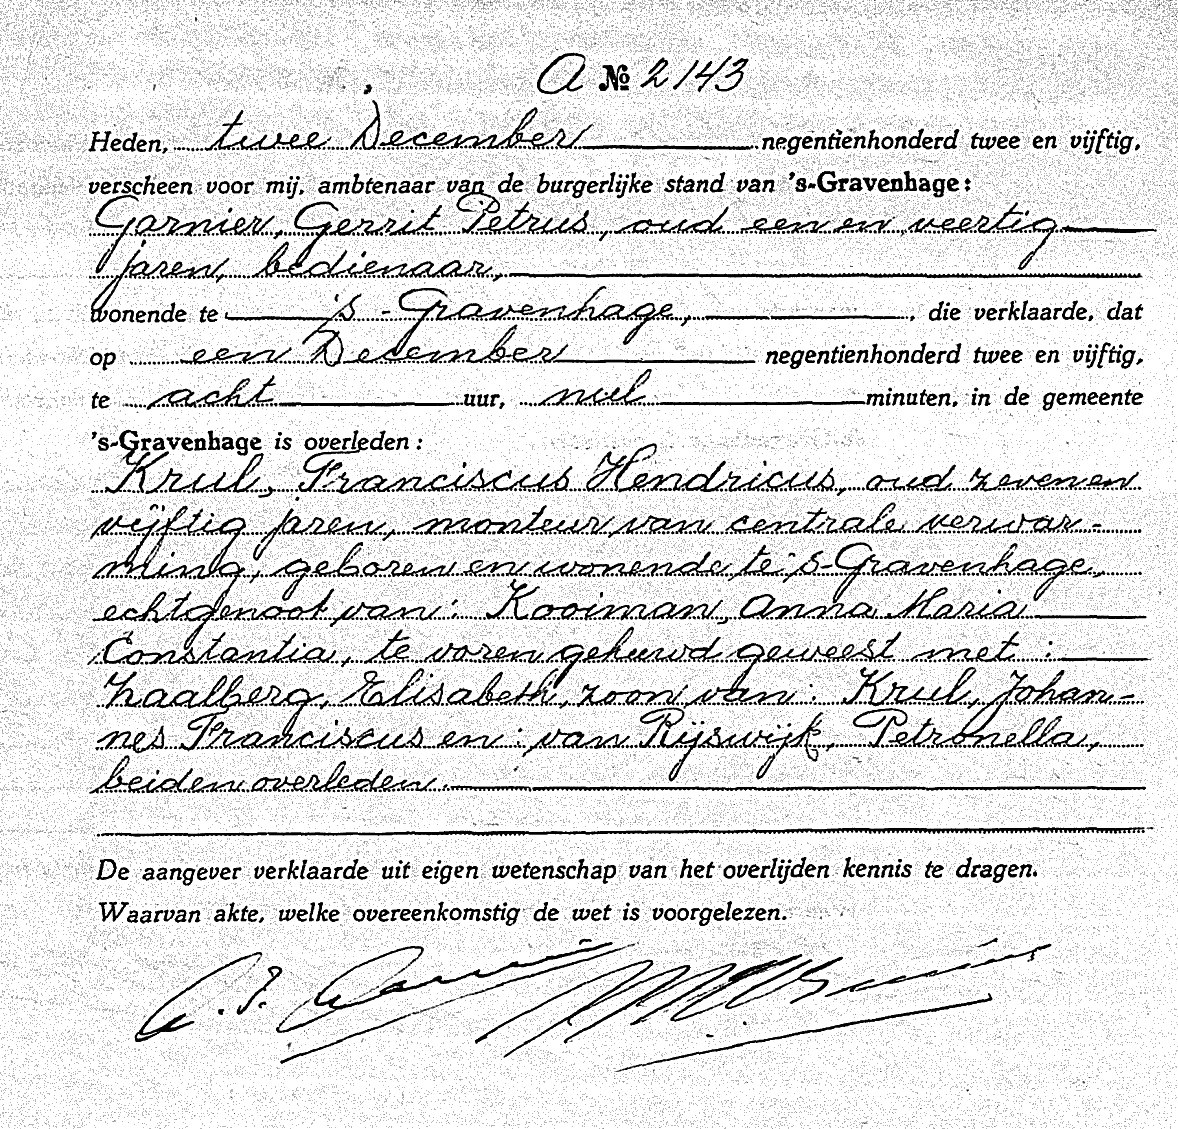 A № 2143
Heden, twee December negentienhonderd twee en vijftig,
verscheen voor mij, ambtenaar van de burgerlijke stand van 's-Gravenhage:
Garnier, Gerrit Petrus, oud een en veertig
jaren, bedienaar,
wonende te 's-Gravenhage, , die verklaarde, dat
op een December negentienhonderd twee en vijftig,
te acht uur, nul minuten, in de gemeente
's-Gravenhage is overleden:
Krul, Franciscus Hendricus, oud zeven en
vijftig jaren, monteur van centrale verwar-
ming, geboren en wonende te 's-Gravenhage,
echtgenoot van: Kooiman, Anna Maria
Constantia, te voren gehuwd geweest met:
Zaalberg, Elisabeth, zoon van: Krul, Johan-
nes Franciscus en: van Rijswijk, Petronella,
beiden overleden.
De aangever verklaarde uit eigen wetenschap van het overlijden kennis te dragen.
Waarvan akte, welke overeenkomstig de wet is voorgelezen.